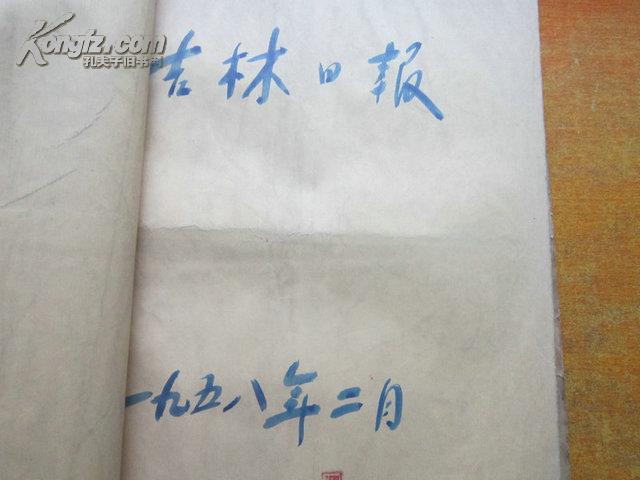 Kongfz.com
孔夫子旧书网
吉林日报
一九五八年二月